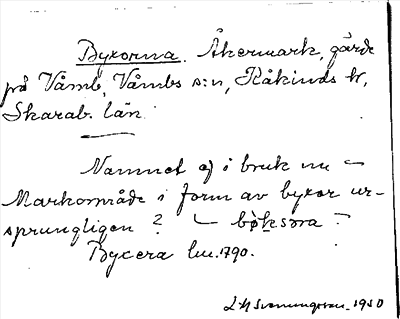 Byxorna. Åkermark, gärde
på Våmb, Våmbs s:n, Kåkinds hd,
Skarab. län.
Namnet ej i bruk nu –
Markområde i form av byxor ur-
sprungligen? – bøksora?
Byxera lm. 1790.
1950